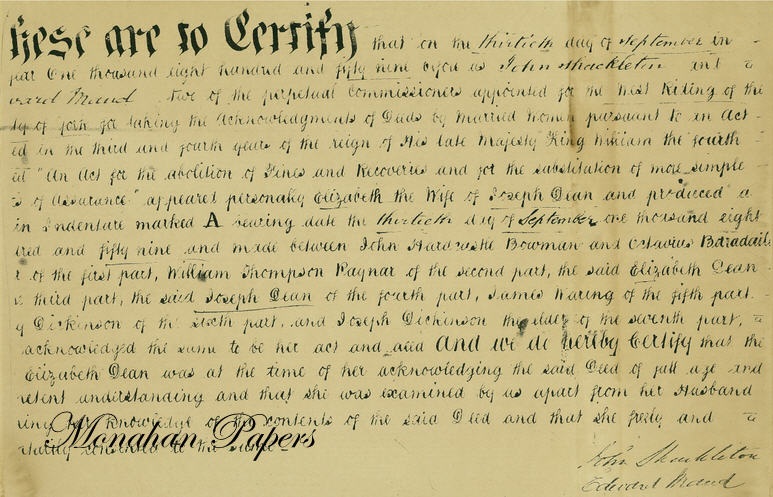 hese are to Certify that on the thirtieth day of September in
One thousand eight hundred and fifty nine before us John Shackleton and
ward Maud two of the perpetual Commissioners appointed for the West Riding of the
ty of York for taking the Acknowledgments of Deeds by Married Women pursuant to an Act
ed in the third and fourth years of the reign of His late Majesty King William the fourth
ed "An Act for the abolition of Fines and Recoveries and for the substitution of more simple
s of Assurance" appeared personally Elizabeth the Wife of Joseph Dean and produced a
in Indenture marked A bearing date the thirtieth day of September one thousand eight
red and fifty nine and made between John Hardcastle Bowman and Octavius
of the first part, William Thompson Raynar of the second part, the said Elizabeth Dean
third part, the said Joseph Dean of the fourth part, James Waring of the fifth part
y Dickinson of the sixth part, and Joseph Dickinson the elder of the seventh part,
acknowledged the same to be her act and deed And we do hereby Certify that the
Elizabeth Dean was at the time of her acknowledging the said Deed of full age and
petent understanding and that she was examined by us apart from her Husband
ing her knowledge of the contents of the said Deed and that she freely and
consented to the same
Monahan Papers
John Shackleton
Edward Maud